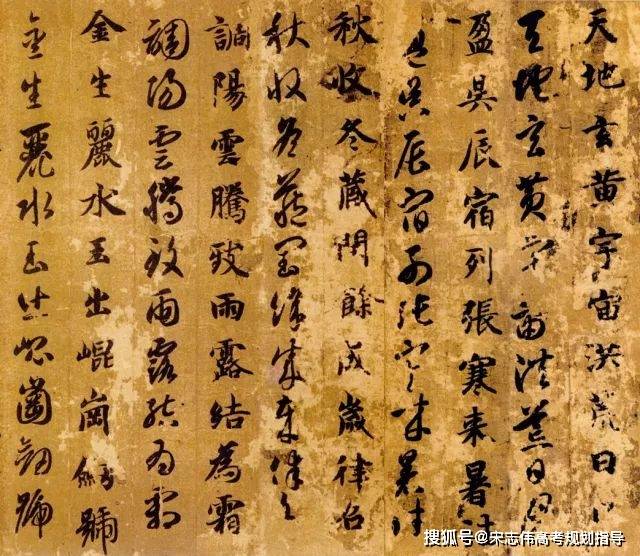 天地玄黄宇宙洪荒日月
天地玄黄宇宙洪荒日月
盈昃辰宿列張寒来暑往
盈昃辰宿列張寒来暑往
秋收冬藏閏餘成歲律召
秋收冬藏閏餘成歲律召
調陽雲騰致雨露結為霜
調陽雲騰致雨露結為霜
金生麗水玉出崐崗劔號
金生麗水玉出崐崗劔號
搜狐号@宋志伟高考规划指导